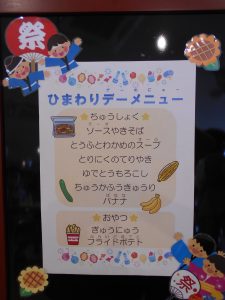 祭
ひまわりデーメニュー
ちゅうしょく
ソースやきそば
とうふとわかめのスープ
とりにくのてりやき
ゆでとうもろこし
ちゅうかふうきゅうり
バナナ
おやつ
ぎゅうにゅう
フライドポテト
祭